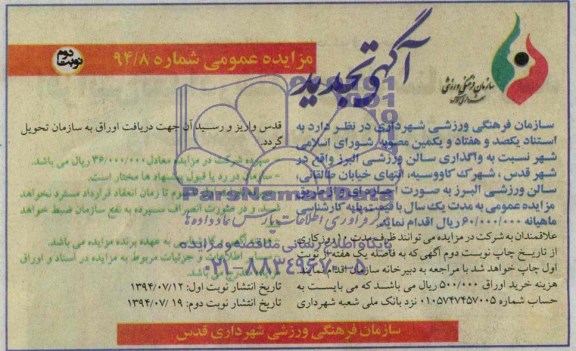 آگهی تجدید
مزایده عمومی شماره ۹۴/۸
نوبت دوم
سازمان فرهنگی ورزشی
سازمان فرهنگی ورزشی شهرداری در نظر دارد به
استناد یکصد و هفتاد و یکمین مصوبه شورای اسلامی
شهر نسبت به واگذاری سالن ورزشی البرز واقع در
شهر قدس، شهرک کاووسیه، انتهای خیابان طالقانی،
سالن ورزشی البرز به صورت اجاره از طریق
مزایده عمومی به مدت یک سال با قیمت پایه کارشناسی
ماهیانه ۶۰/۰۰۰/۰۰۰ ریال اقدام نماید.
علاقمندان به شرکت در مزایده می توانند ظرف مدت ۱۰ روز کاری
از تاریخ چاپ نوبت دوم آگهی که به فاصله یک هفته از نوبت
اول چاپ خواهد شد با مراجعه به دبیرخانه سازمان اقدام نمایند
هزینه خرید اوراق ۵۰۰/۰۰۰ ریال می باشد که می بایست به
حساب شماره ۰۱۰۵۷۴۷۴۵۷۰۰۵ نزد بانک ملی شعبه شهرداری
قدس واریز و رسید آن جهت دریافت اوراق به سازمان تحویل
گردد.
- سپرده شرکت در مزایده معادل ۳۶/۰۰۰/۰۰۰ ریال می باشد.
- سازمان در رد یا قبول پیشنهاد ها مختار است.
سوم تا زمان انعقاد قرارداد مسترد نخواهد
شد و در صورت انصراف سپرده به نفع سازمان ضبط خواهد
شد.
آگهی بر عهده برنده مزایده می باشد.
سایر اطلاعات و جزئیات مربوط به مزایده در اسناد و اوراق
تاریخ انتشار نوبت اول: ۱۳۹۴/۰۷/۱۲
تاریخ انتشار نوبت دوم: ۱۳۹۴/۰۷/۱۹
سازمان فرهنگی ورزشی شهرداری قدس
ParsNamadData
فرآوری اطلاعات پارس نماد داده ها
پایگاه اطلاع رسانی مناقصه و مزایده
۰۲۱-۸۸۳۴۹۶۷۰-۵